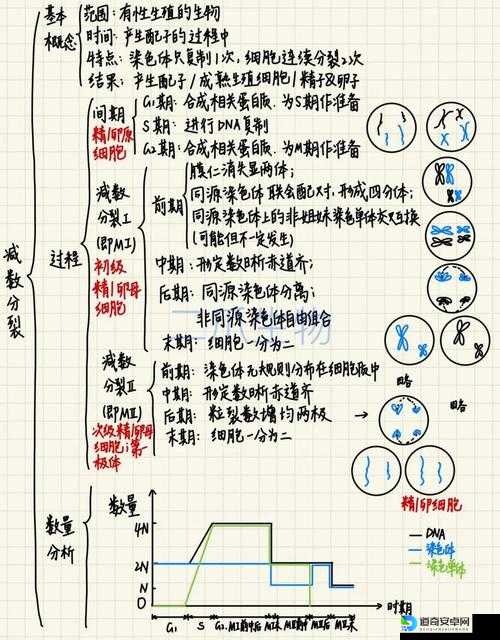 减数分裂
基本概念
范围：有性生殖的生物
时间：产生配子的过程中
特点：染色体只复制1次，细胞连续分裂2次
结果：产生配子/成熟生殖细胞/精子&卵子
过程
间期
精/卵原细胞
G1期：合成相关蛋白质.为S期作准备
S期：进行DNA复制
G2期：合成相关蛋白质.为M期作准备
减数分裂I
(即MI)
初级精/卵母细胞
前期
膜仁消失显两体；
同源染色体联会配对，形成四分体；
同源染色体上的非姐妹染色单体交叉互换
(可能但不一定发生)
中期：形定数晰赤道齐；
后期：同源染色体分离；
非同源染色体自由组合
末期：细胞一分为二
略
略
减数分裂II
(即MII)
次级精/卵母细胞；第一极体
前期：染色体无规则分布在细胞质中
中期：形定数晰赤道齐
后期：粒裂数增均两极
末期：细胞一分为二
精/卵细胞
数量分析
数量
4N
2N
N
0
G1 S G2 MI前中 MI后 MI末 MII前中 MII后 MII末
时期
DNA
染色体
染色单体
道奇安卓网